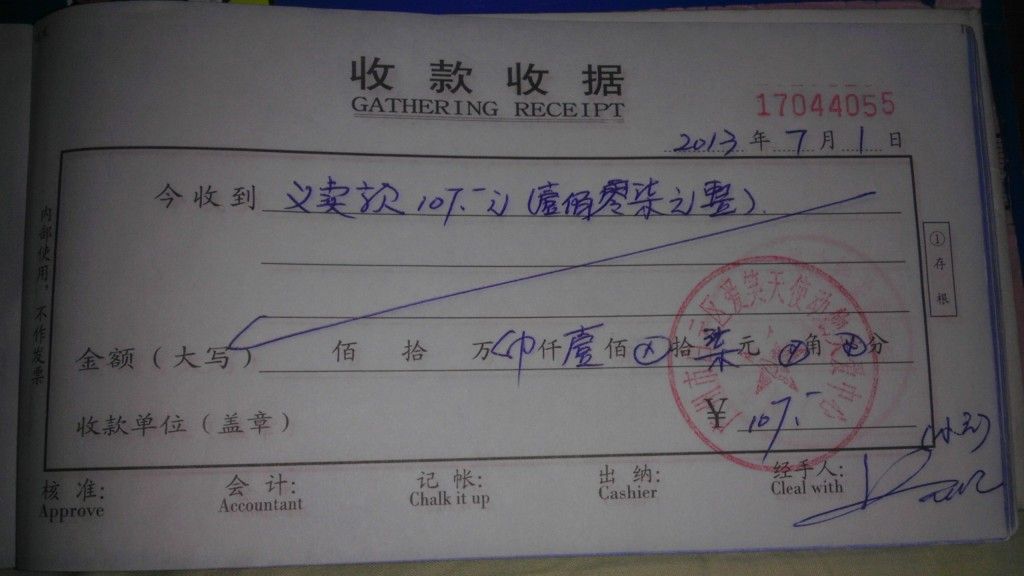 收款收据
GATHERING RECEIPT
17044055
2013年7月1日
今收到 义卖款107.-元(壹佰零柒元整)
金额(大写) 佰 拾 万 仟壹佰⊗拾柒元⊗角⊗分
收款单位(盖章) ¥ 107.-
核准: 会计: 记帐: 出纳: 经手人:
Approve Accountant Chalk it up Cashier Cleal with
内部使用,不作发票
①存根
爱笑天使动
中心